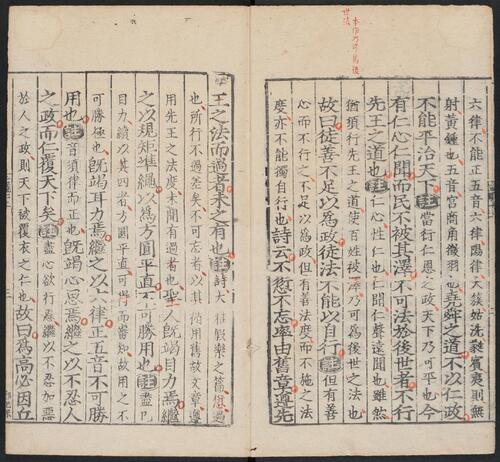 本作乃可爲後
世法
六律不能正五音六律陽律大簇姑洗蕤賓夷則無
射黃鍾也五音宮商角徵羽也堯舜之道不以仁政
不能平治天下註當行仁恩之政天下乃可平也今
有仁心仁聞而民不被其澤不可法於後世者不行
先王之道也註仁心性仁也仁聞仁聲遠聞也雖然
猶須行先王之道使百姓被澤乃可爲後世之法也
故曰徒善不足以爲政徒法不能以自行註但有善
心而不行之不足以爲政但有善法度而不施之法
度亦不能獨自行也詩云不愆不忘率由舊章遵先
王之法而過者未之有也註詩大雅假樂之篇愆過
也所行不過差矣不可忘者以其循用舊故文章遵
用先王之法度未聞有過者也聖人旣竭目力焉繼
之以規矩準繩以爲方圓平直不可勝用也註盡已
目力續以其四者方圓平直可得而審知故用之不
可勝極也旣竭耳力焉繼之以六律正五音不可勝
用也註音須律而正也旣竭心思焉繼之以不忍人
之政而仁覆天下矣註盡心欲行恩繼以不忍加惡
於人之政則天下被覆衣之仁也故曰爲高必因丘